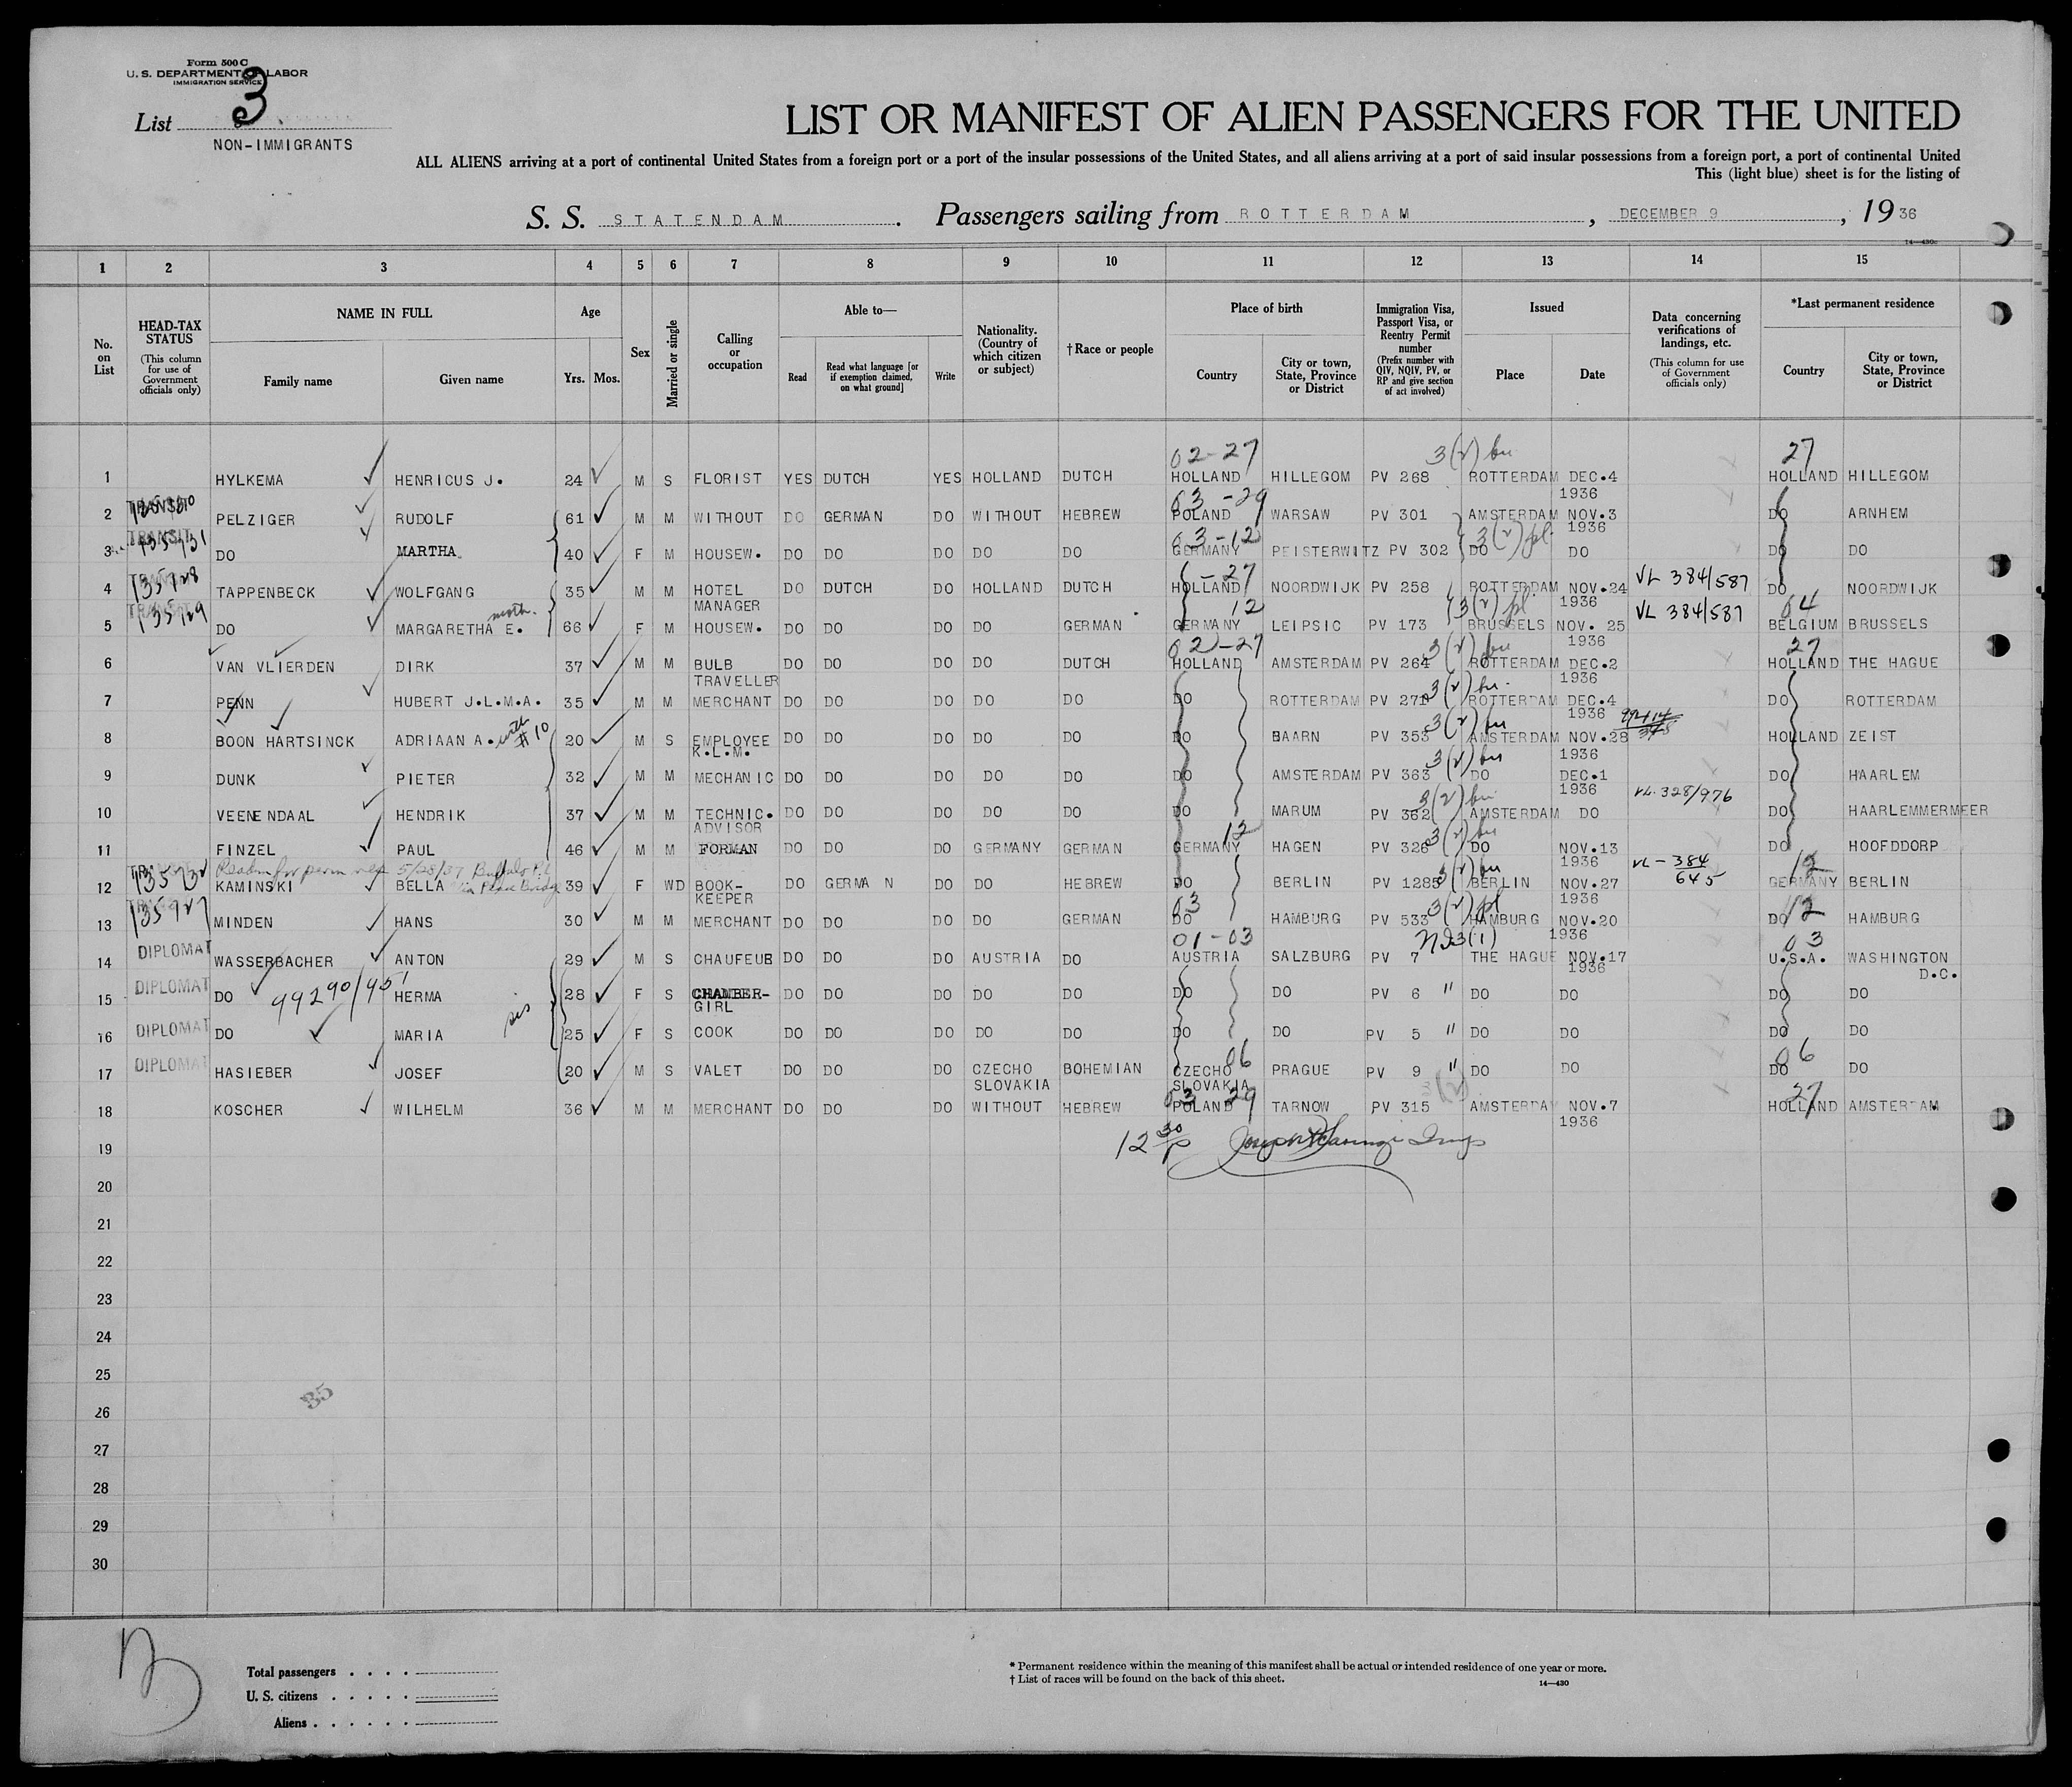 Form 500 C
U. S. DEPARTMENT OF LABOR
IMMIGRATION SERVICE
List 3
NON-IMMIGRANTS
LIST OR MANIFEST OF ALIEN PASSENGERS FOR THE UNITED
ALL ALIENS arriving at a port of continental United States from a foreign port or a port of the insular possessions of the United States, and all aliens arriving at a port of said insular possessions from a foreign port, a port of continental United
This (light blue) sheet is for the listing of
S. S. STATENDAM. Passengers sailing from ROTTERDAM, DECEMBER 9, 1936
14—430c
1 2 3 4 5 6 7 8 9 10 11 12 13 14 15
No. on List
HEAD-TAX STATUS
(This column for use of Government officials only)
NAME IN FULL
Family name Given name
Age
Yrs. Mos.
Sex
Married or single
Calling or occupation
Able to—
Read
Read what language [or if exemption claimed, on what ground]
Write
Nationality. (Country of which citizen or subject)
† Race or people
Place of birth
Country
City or town, State, Province or District
Immigration Visa, Passport Visa, or Reentry Permit number
(Prefix number with QIV, NQIV, PV, or RP and give section of act involved)
Issued
Place Date
Data concerning verifications of landings, etc.
(This column for use of Government officials only)
*Last permanent residence
Country
City or town, State, Province or District
02-27 3(2) bu 27
1 HYLKEMA HENRICUS J. 24 M S FLORIST YES DUTCH YES HOLLAND DUTCH HOLLAND HILLEGOM PV 268 ROTTERDAM DEC.4 1936 HOLLAND HILLEGOM
03-29
2 TRANSIT PELZIGER RUDOLF 61 M M WITHOUT DO GERMAN DO WITHOUT HEBREW POLAND WARSAW PV 301 AMSTERDAM NOV.3 1936 DO ARNHEM
03-12 3(2) pl
3 TRANSIT 135731 DO MARTHA 40 F M HOUSEW. DO DO DO DO DO GERMANY PEISTERWITZ PV 302 DO DO DO DO
-27
4 135928 TAPPENBECK WOLFGANG 35 M M HOTEL MANAGER DO DUTCH DO HOLLAND DUTCH HOLLAND NOORDWIJK PV 258 ROTTERDAM NOV.24 1936 VL 384/587 DO NOORDWIJK
moth. 12 3(2) pl 04
5 135929 DO MARGARETHA E. 66 F M HOUSEW. DO DO DO DO GERMAN GERMANY LEIPSIC PV 173 BRUSSELS NOV. 25 1936 VL 384/587 BELGIUM BRUSSELS
02-27 3(2) bu 27
6 VAN VLIERDEN DIRK 37 M M BULB TRAVELLER DO DO DO DO DUTCH HOLLAND AMSTERDAM PV 264 ROTTERDAM DEC.2 1936 HOLLAND THE HAGUE
3(2) bu
7 PENN HUBERT J.L.M.A. 35 M M MERCHANT DO DO DO DO DO DO ROTTERDAM PV 271 ROTTERDAM DEC.4 1936 DO ROTTERDAM
3(2) bu
8 BOON HARTSINCK ADRIAAN A. with #10 20 M S EMPLOYEE K.L.M. DO DO DO DO DO DO BAARN PV 353 AMSTERDAM NOV.28 1936 HOLLAND ZEIST
3(2) bu
9 DUNK PIETER 32 M M MECHANIC DO DO DO DO DO DO AMSTERDAM PV 363 DO DEC.1 1936 DO HAARLEM
3(2) bu VL. 328/976
10 VEENENDAAL HENDRIK 37 M M TECHNIC. ADVISOR DO DO DO DO DO DO MARUM PV 362 AMSTERDAM DO DO HAARLEMMERMEER
12 3(2) bu
11 FINZEL PAUL 46 M M FORMAN DO DO DO GERMANY GERMAN GERMANY HAGEN PV 326 DO NOV.13 1936 DO HOOFDDORP
Readm for perm res 5/28/37 Buffalo N.Y. via Peace Bridge 3(2) bu VL-384/645 12
12 KAMINSKI BELLA 39 F WD BOOK-KEEPER DO GERMAN DO DO HEBREW DO BERLIN PV 1285 BERLIN NOV.27 1936 GERMANY BERLIN
03 3(2) pl 12
13 135927 MINDEN HANS 30 M M MERCHANT DO DO DO DO GERMAN DO HAMBURG PV 533 HAMBURG NOV.20 1936 DO HAMBURG
01-03 3(1) 03
14 DIPLOMAT WASSERBACHER ANTON 29 M S CHAUFEUR DO DO DO AUSTRIA DO AUSTRIA SALZBURG PV 7 THE HAGUE NOV.17 1936 U.S.A. WASHINGTON D.C.
99290/951
15 DIPLOMAT DO HERMA 28 F S CHAMBER-GIRL DO DO DO DO DO DO DO PV 6 " DO DO DO DO
16 DIPLOMAT DO MARIA sis 25 F S COOK DO DO DO DO DO DO DO PV 5 " DO DO DO DO
06 06
17 DIPLOMAT HASIEBER JOSEF 20 M S VALET DO DO DO CZECHO SLOVAKIA BOHEMIAN CZECHO SLOVAKIA PRAGUE PV 9 " DO DO DO DO
03 29 3(2) 27
18 KOSCHER WILHELM 36 M M MERCHANT DO DO DO WITHOUT HEBREW POLAND TARNOW PV 315 AMSTERDAM NOV.7 1936 HOLLAND AMSTERDAM
12 30 P
19
20
21
22
23
24
25
35
26
27
28
29
30
Total passengers
U. S. citizens
Aliens
* Permanent residence within the meaning of this manifest shall be actual or intended residence of one year or more.
† List of races will be found on the back of this sheet.
14—430